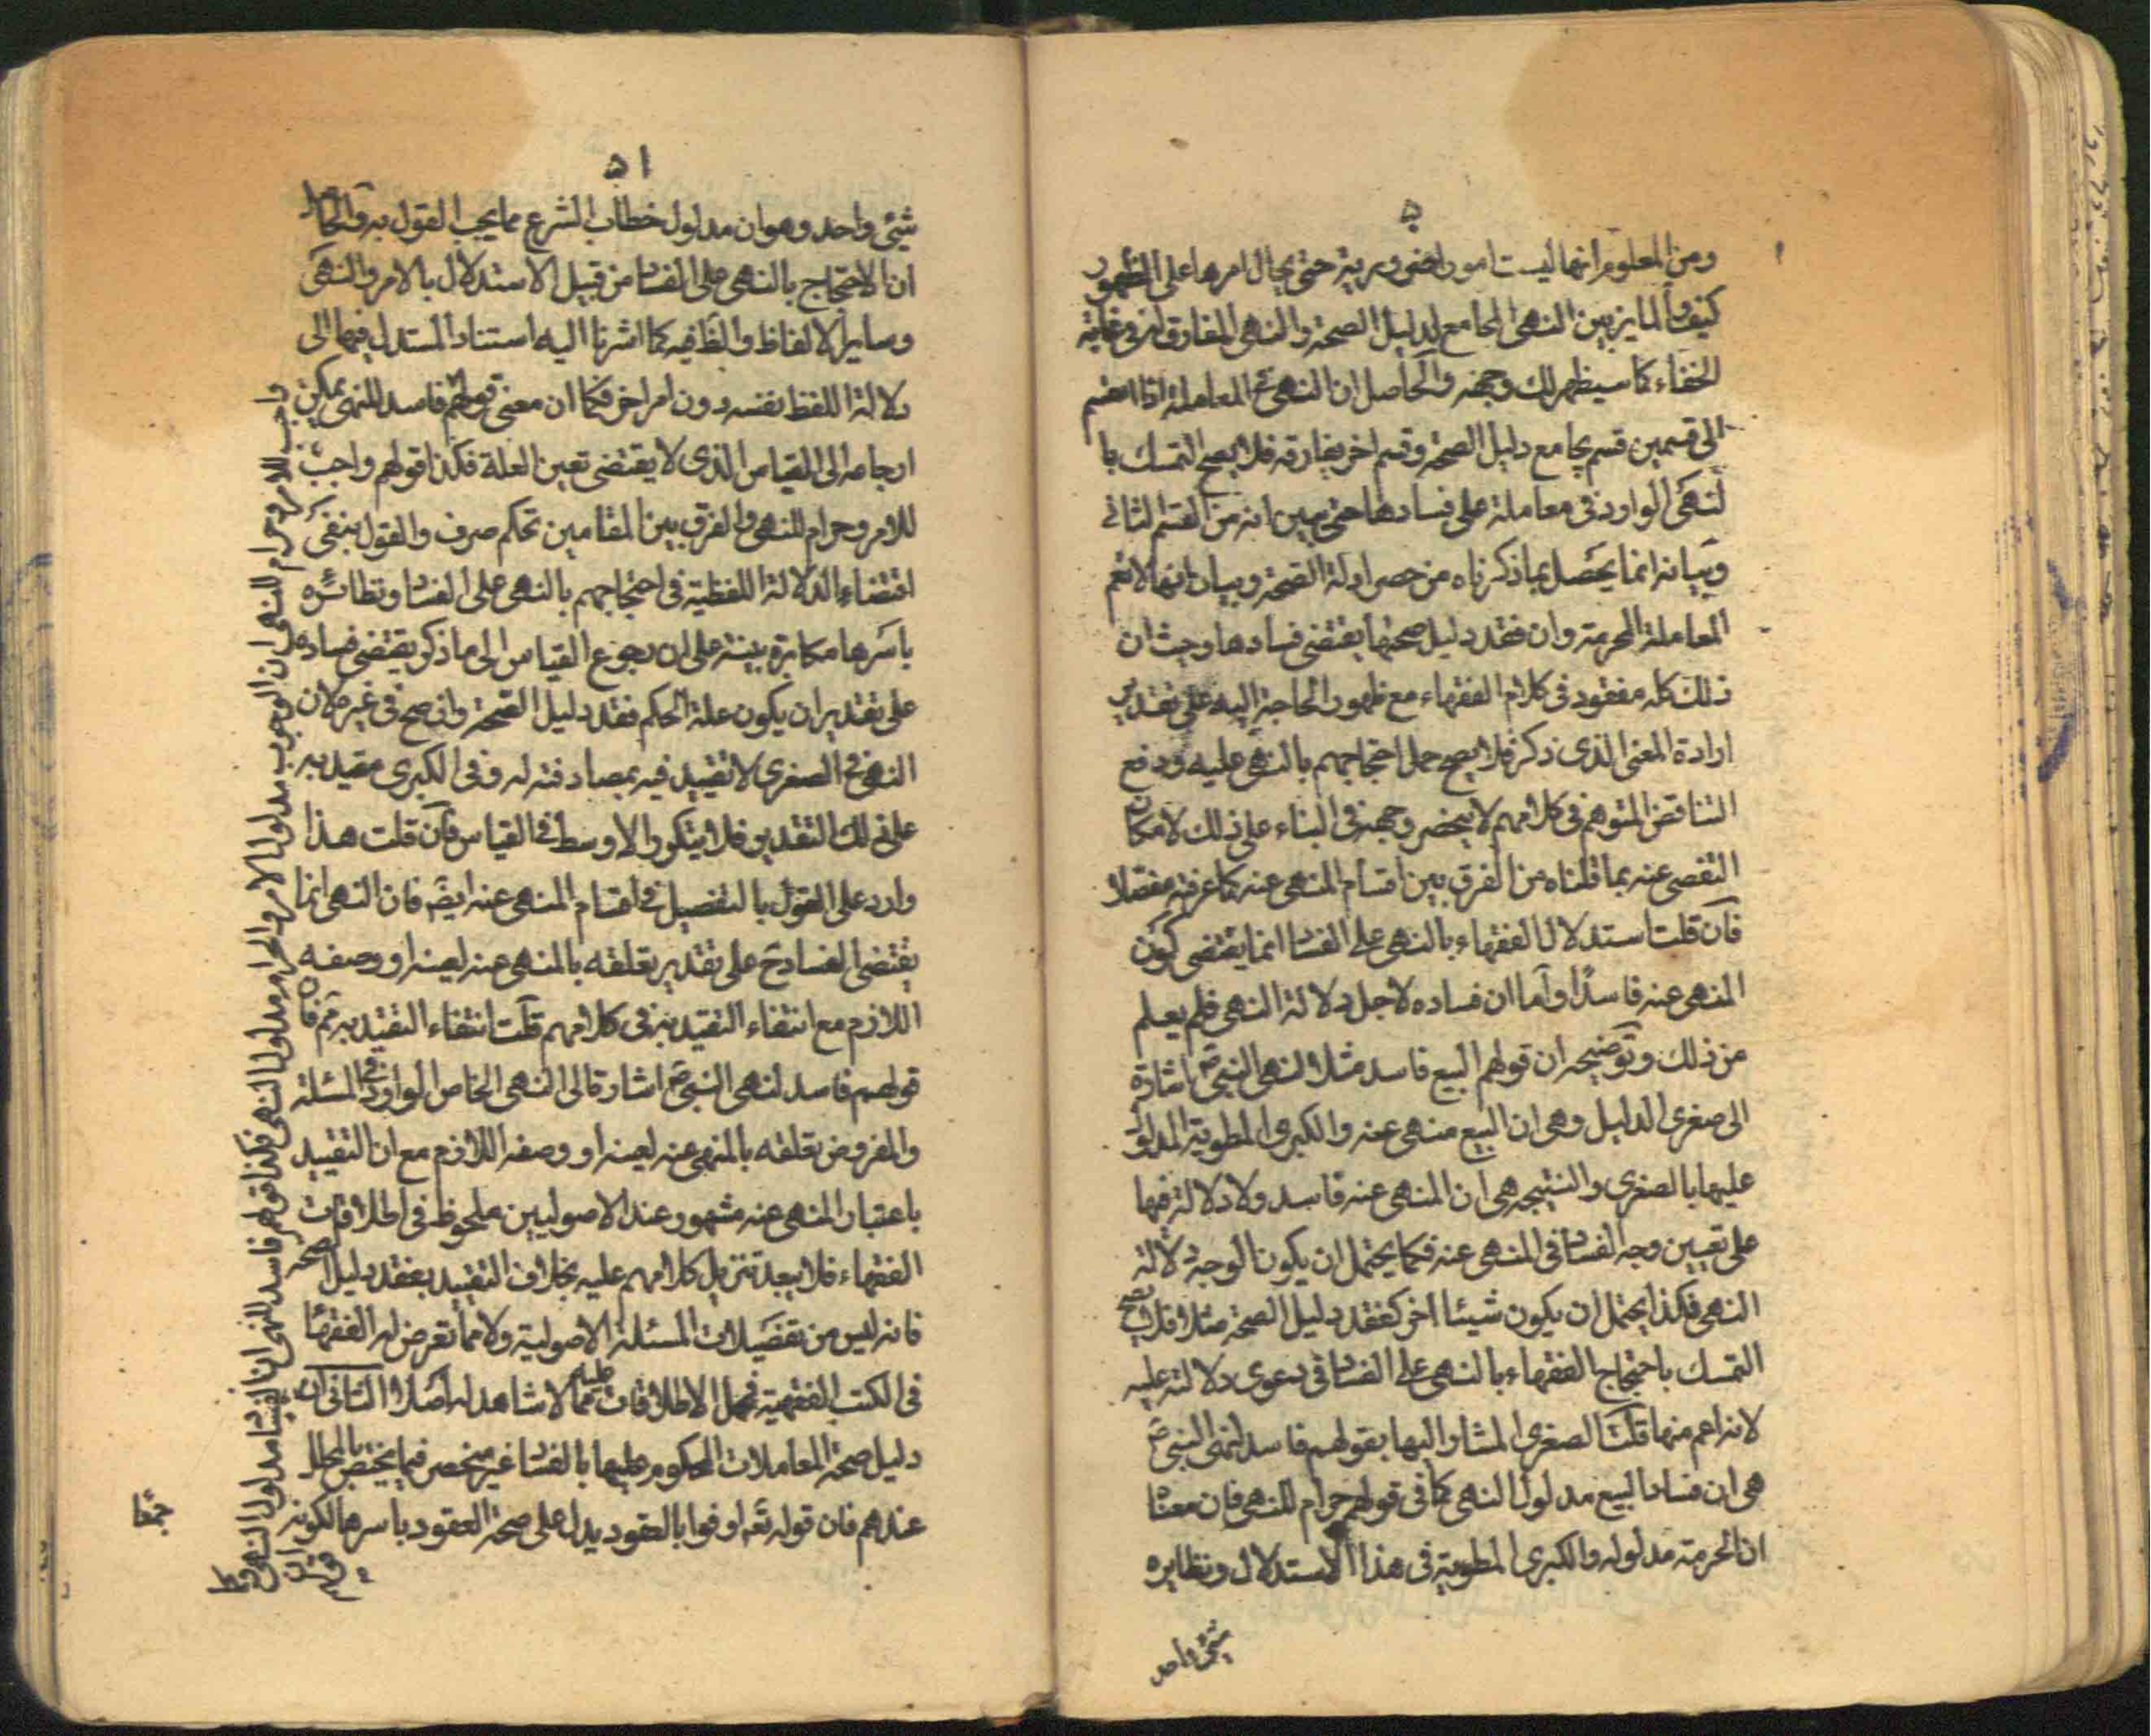 ٥
ومن المعلوم انها ليست امورا ضرورية حتى يحال امرها على الظهور
كيف والمايز بين النهى الجامع لدليل الصحة والنهى المفارق له فى غاية
الخفاء كما سيظهر لك وجهه والحاصل ان النهى فى المعاملة اذا انقسم
الى قسمين قسم يجامع دليل الصحة وقسم اخر يفارقه فلا يصح التمسك با
لنهى الوارد فى معاملة على فسادها حتى يبين انه من القسم الثانى
وبيانه انما يحصل بما ذكرناه من حصر ادلة الصحة وبيان انها لا تعم
المعاملة المحرمة وان فقد دليل صحتها يقتضى فسادها وحيث ان
ذلك كله مفقود فى كلام الفقهاء مع ظهور الحاجة اليه على تقدير
ارادة المعنى الذى ذكر فلا يصح حمل احتجاجهم بالنهى عليه ودفع
التناقض المتوهم فى كلامهم لا ينحصر وجهه فى البناء على ذلك لامكان
التفصى عنه بما قلناه من الفرق بين اقسام المنهى عنه كما عرفته مفصلا
فان قلت استدلال الفقهاء بالنهى على الفساد انما يقتضى كون
المنهى عنه فاسدا واما ان فساده لاجل دلالة النهى فلم يعلم
من ذلك وتوضيحه ان قولهم البيع فاسد مثلا لنهى النبى ص اشارة
الى صغرى الدليل وهى ان البيع منهى عنه والكبرى المطوية المدلول
عليها بالصغرى والنتيجه هى ان المنهى عنه فاسد ولا دلالة فيها
على تعيين وجه الفساد فى المنهى عنه فكما يحتمل ان يكون الوجه دلالة
النهى فكذا يحتمل ان يكون شيئا اخر كفقد دليل الصحة مثلا فلا يصح
التمسك باحتجاج الفقهاء بالنهى على الفساد فى دعوى دلالته عليه
لانه اعم منها قلت الصغرى المشار اليها بقولهم فاسد لنهى النبى ص
هى ان فساد البيع مدلول النهى كما فى قولهم حرام للنهى فان معناه
ان الحرمة مدلوله والكبرى المطوية فى هذا الاستدلال ونظايره
شيئ واحد
٥١
شيئ واحد وهو ان مدلول خطاب الشرع مما يجب القول به والحاصل
ان الاحتجاج بالنهى على الفساد من قبيل الاستدلال بالامر والنهى
وساير الالفاظ والظ فيه كما اشرنا اليه استناد المستدل فيها الى
دلالة اللفظ بنفسه دون امر اخر فكما ان معنى قولهم فاسد للنهى يمكن
ارجاعه الى القياس الذى لا يقتضى تعيين العلة فكذا قولهم واجب
للامر وحرام للنهى والفرق بين المقامين تحكم صرف والقول بنفى
اقتضاء الدلالة اللفظية فى احتجاجهم بالنهى على الفساد ونظائره
باسرها مكابرة بينة على ان رجوع القياس الى ما ذكر يقتضى فساده
على تقدير ان يكون علة الحكم فقد دليل الصحة وان صح فى غيره لان
النهى فى الصغرى لا تقييد فيه بمصادفته له وفى الكبرى مقيد به
على ذلك التقدير فلا يتكرر الاوسط فى القياس فان قلت هذا
وارد على القول بالتفصيل فى اقسام المنهى عنه ايضا فان النهى انما
يقتضى الفساد ح على تقدير تعلقه بالمنهى عنه لعينه او وصفه
اللازم مع انتفاء التقييد به فى كلامهم قلت انتفاء التقييد به مم فان
قولهم فاسد لنهى النبى ص اشارة الى النهى الخاص الوارد فى المسئلة
والمفروض تعلقه بالمنهى عنه لعينه او وصفه اللازم مع ان التقييد
باعتبار المنهى عنه مشهور عند الاصوليين ملحوظ فى اطلاقات
الفقهاء فلا يبعد تنزيل كلامهم عليه بخلاف التقييد بفقد دليل الصحة
فانه ليس من تفصيلات المسئلة الاصولية ولا مما تعرض له الفقهاء
فى الكتب الفقهية فحمل الاطلاقات عليه مما لا شاهد له اصلا الثانى ان
دليل صحة المعاملات المحكوم عليها بالفساد غير منحصر فيما يختص بالمحلل
عندهم فان قوله تع اوفوا بالعقود يدل على صحة العقود باسرها لكونه
جمعا
واجب للامر وحرام للنهى ان الوجوب مدلول الامر والحرام مدلول النهى فكذا قولهم فاسد للنهى ان الفساد مدلول النهى